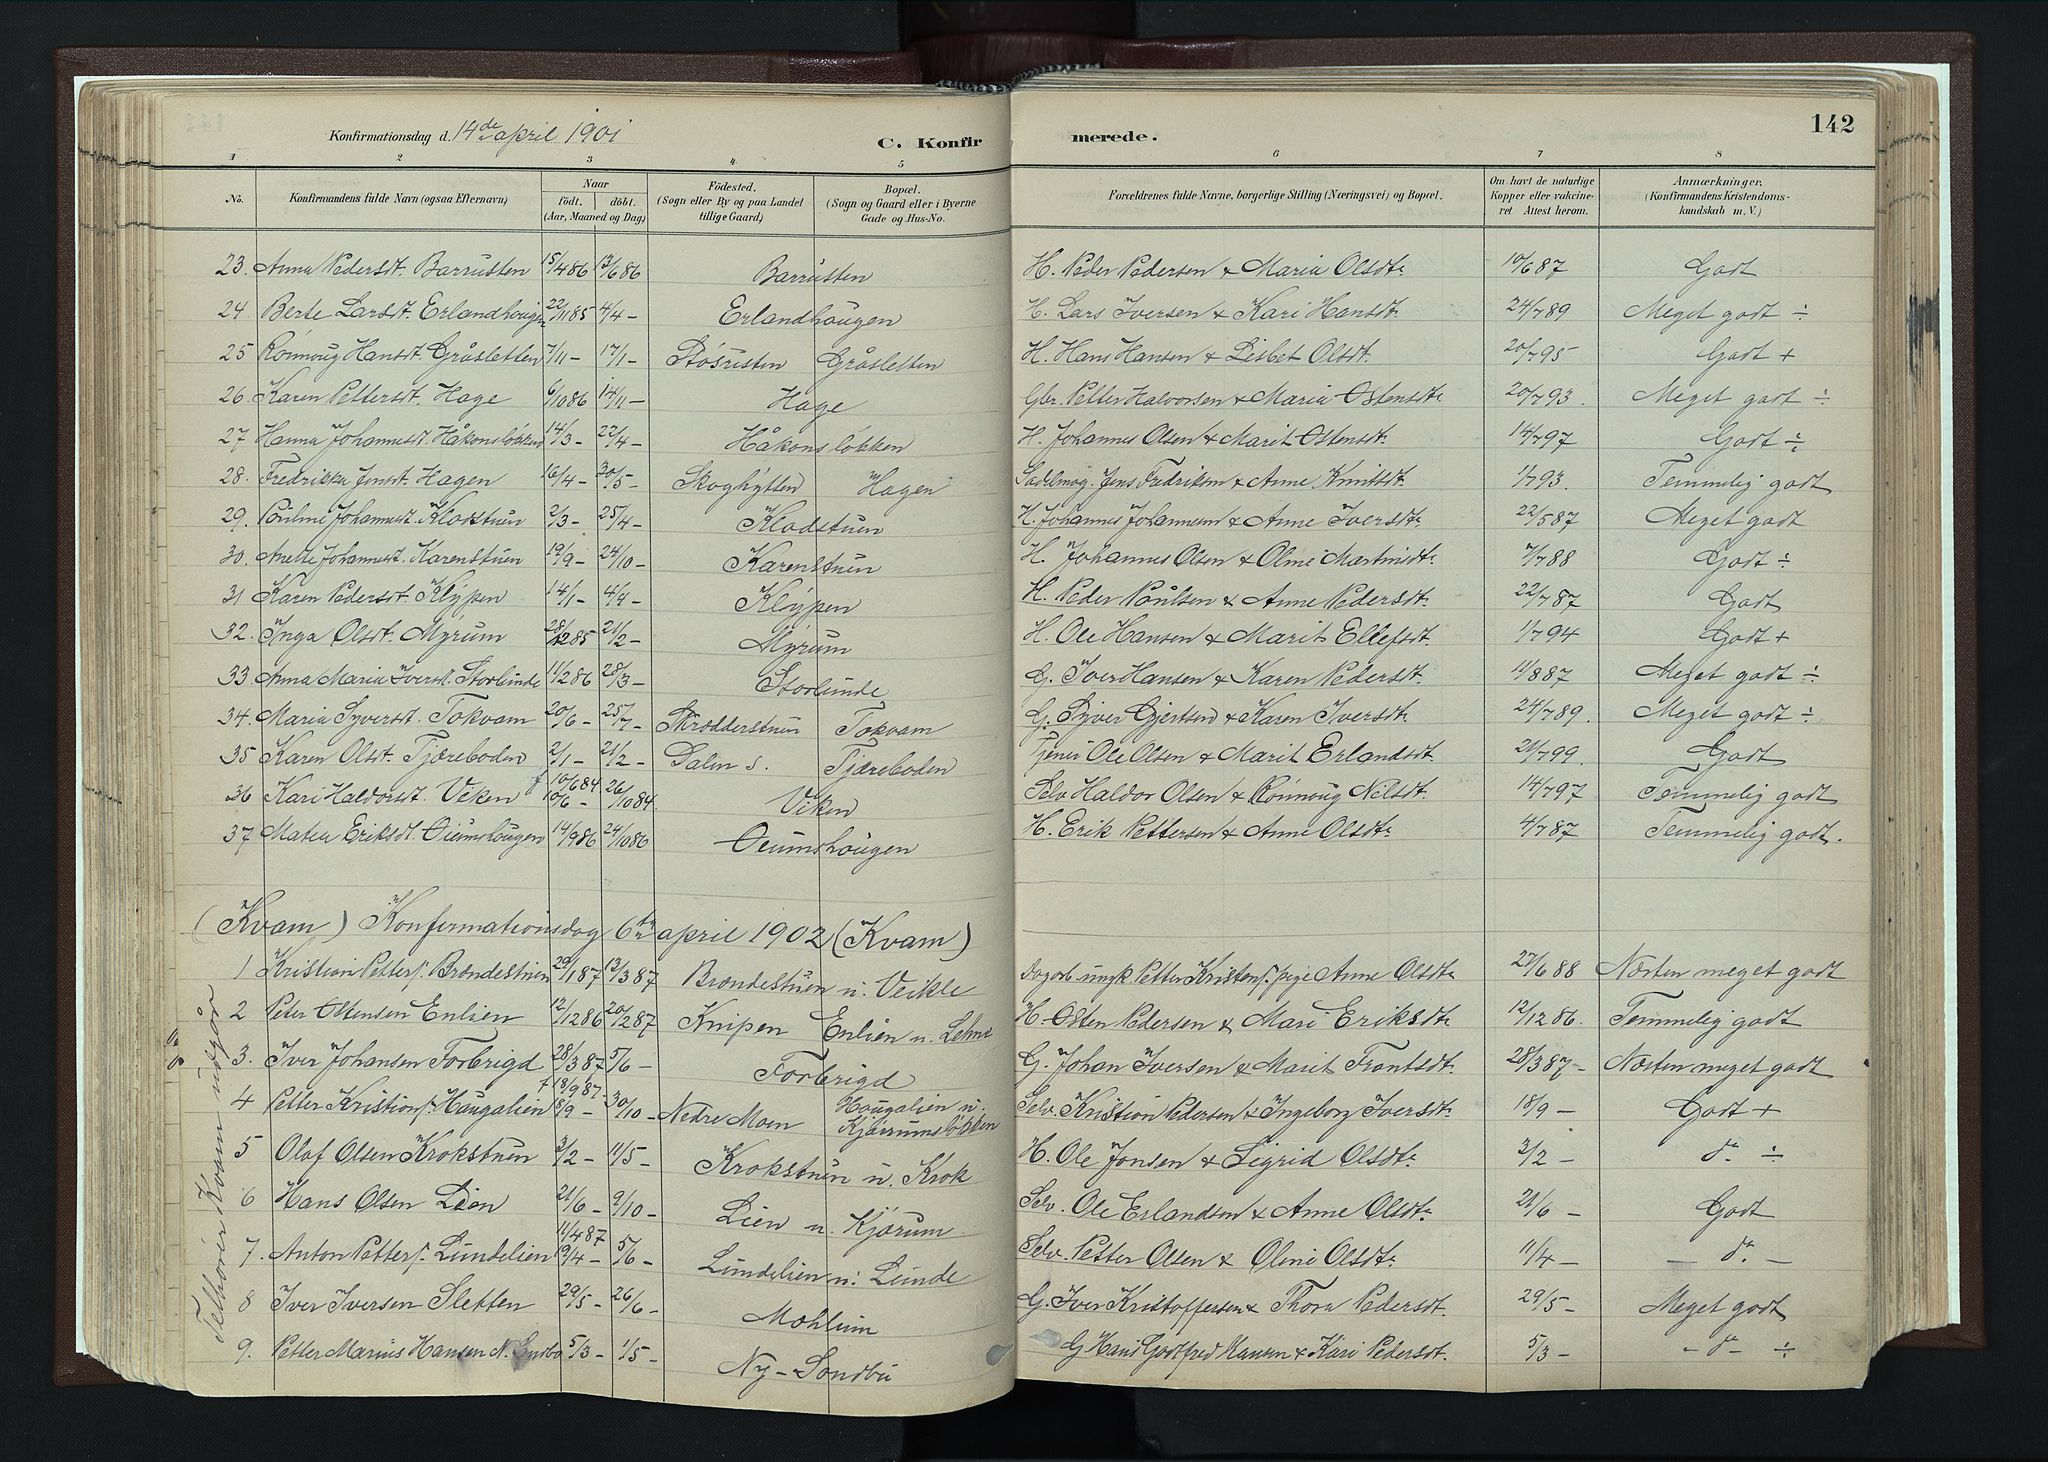 142
Konfirmationsdag d. 14de april 1901
C. Konfirmerede.
1 2 3 4 5 6 7 8
No. Konfirmandens fulde Navn (ogsaa Efternavn) Naar født. døbt. (Aar, Maaned og Dag) Fødested. (Sogn eller By og paa Landet tillige Gaard) Bopæl. (Sogn og Gaard eller i Byerne Gade og Hus-No. Forældrenes fulde Navne, borgerlige Stilling (Næringsvei) og Bopæl. Om havt de naturlige Kopper eller vakcineret Attest herom. Anmærkninger. (Konfirmandens Kristendomskundskab m. V.)
23. Anna Pedersdt. Barrusten 15/4 86 13/6 86 Barrusten H. Peder Pedersen & Maria Olsdtr 10/6 87 Godt
24 Berte Larsdt. Erlandhougen 22/11 85 4/4 – Erlandhougen H. Lars Iversen & Kari Hansdt. 24/7 89 Meget godt ÷
25 Rønnoug Hansdt. Gråsletten 7/11 – 17/1 – Gråsletten H. Hans Hansen & Lisbet Olsdt. 20/7 95 Godt +
26. Karen Pettersdt. Hage 6/10 86 14/11 – Hage Gbr. Petter Halvorsen & Maria Ostensdtr 20/7 93. Meget godt ÷
27 Hanna Johannesdt. Håkonsløkken 14/3 – 22/4 – Håkonsløkken H. Johannes Olsen & Marit Ostensdt. 14/7 97 Godt ÷
28. Fredrikke Jensdt. Hagen 16/4 – 30/5 – Skoghytten Hagen Sadelmag. Jens Fredriksen & Anne Knutsdt. 1/7 93. Temmelig godt
29. Pauline Johannesdt. Klodstuen 2/3 – 25/4 – Klodstuen H. Johannes Johannesen & Anne Iversdtr 22/5 87 Meget godt
30. Anette Johannesdt. Karenstuen 19/9 – 24/10 – Karenstuen H. Johannes Olsen & Oline Martinsdtr 7/7 88 Godt ÷
31 Karen Pedersdt. Kløpen 14/1 – 4/4 – Kløpen H. Peder Paulsen & Anne Pedersdtr 22/7 87 Godt
32. Inga Olsdt. Myrum 28/12 85 21/2 – Myrum H. Ole Hansen & Marit Ellefsdt. 1/7 94 Godt +
33. Anna Maria Iversdt. Storlunde 11/2 86 28/3 – Storlunde G. Iver Hansen & Karen Pedersdt. 11/8 87 Meget godt ÷
34. Maria Syversdt. Tokvam 20/6 – 25/7 – Skrødderstuen Tokvam G. Syver Gjertsen & Karen Iversdtr 24/7 89. Meget godt ÷
35 Karen Olsdt. Tjæreboden 2/1 – 21/2 – Dalen s. Tjæreboden Tjener Ole Olsen & Marit Erlandsdt. 21/7 99. Godt
36 Kari Haldorsdt. Viken 10/6 84 10/6 – 26/10 84 Viken Selv. Haldor Olsen & Rønnoug Nilsdt. 14/7 97 Temmelig godt
37 Matea Eriksdt. Oiumshougen 14/9 86 24/10 86 Oiumshougen H. Erik Pettersen & Anne Olsdtr 4/7 87 Temmelig godt.
(Kvam) Konfirmationsdag 6te april 1902 (Kvam)
1 Kristian Petters. Brændestuen 29/1 87 13/3 87 Brændestuen u. Veikle Dagarb. ungk. Petter Kristens. pige Anne Olsdtr 27/6 88 Næsten meget godt
2 Peter Ostensen Enlien 12/12 86 20/2 87 Knipen Enlien u. Lehne H. Osten Pedersen & Mari Eriksdtr 12/12 86. Temmelig godt
3. Iver Johansen Forbrigd 28/3 87 5/6 – Forbrigd G. Johan Iversen & Marit Frantsdt. 28/3 87 – Næsten meget godt
4 Petter Kristians. Haugalien 18/9 87 18/9 – 30/10 – Nedre Moen Hougalien u. Kjørumsløkken Selv. Kristian Pedersen & Ingeborg Iversdt. 18/9 – Godt +
5 Olaf Olsen Krokstuen 3/2 – 11/5 – Krokstuen u. Krok H. Ole Jonsen & Sigrid Olsdt. 3/2 – do ÷
6 Hans Olsen Lien 21/6 – 9/10 – Lien u. Kjørum Selv. Ole Erlandsen & Anne Olsdtr 21/6 – Godt
7. Anton Petters. Lundelien 11/4 87 19/4 – 5/6 – Lundelien u. Lunde Selv. Petter Olsen & Oline Olsdtr 11/4 – – do –
8 Iver Iversen Sletten 29/5 – 26/6 – Mohlum G. Iver Kristoffersen & Thora Pedersdt. 29/5 – Meget godt
9. Petter Marius Hansen N. Sndbu 5/3 – 1/5 – Ny-Sondbu G Hans Godtfred Hansen & Kari Pedersdt. 5/3 – – do – ÷
Kvam